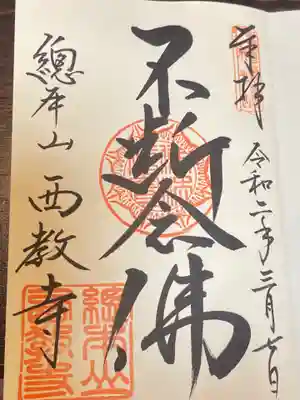 奉拝
令和二年三月七日
不断念佛
總本山 西教寺
總本山
西教寺